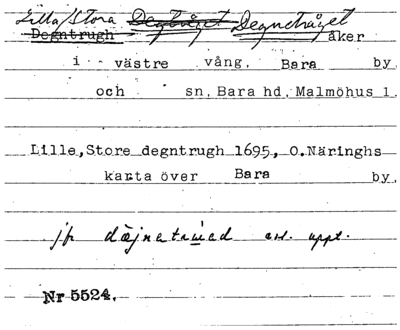 Lilla/Stora Degtråget Degnetråget
Degntrugh åker
i västre vång, Bara by
och sn, Bara hd, Malmöhus l.
Lille, Store degntrugh 1695, O.Näringhs
karta över Bara by.
jfr uppt.
Nr 5524.